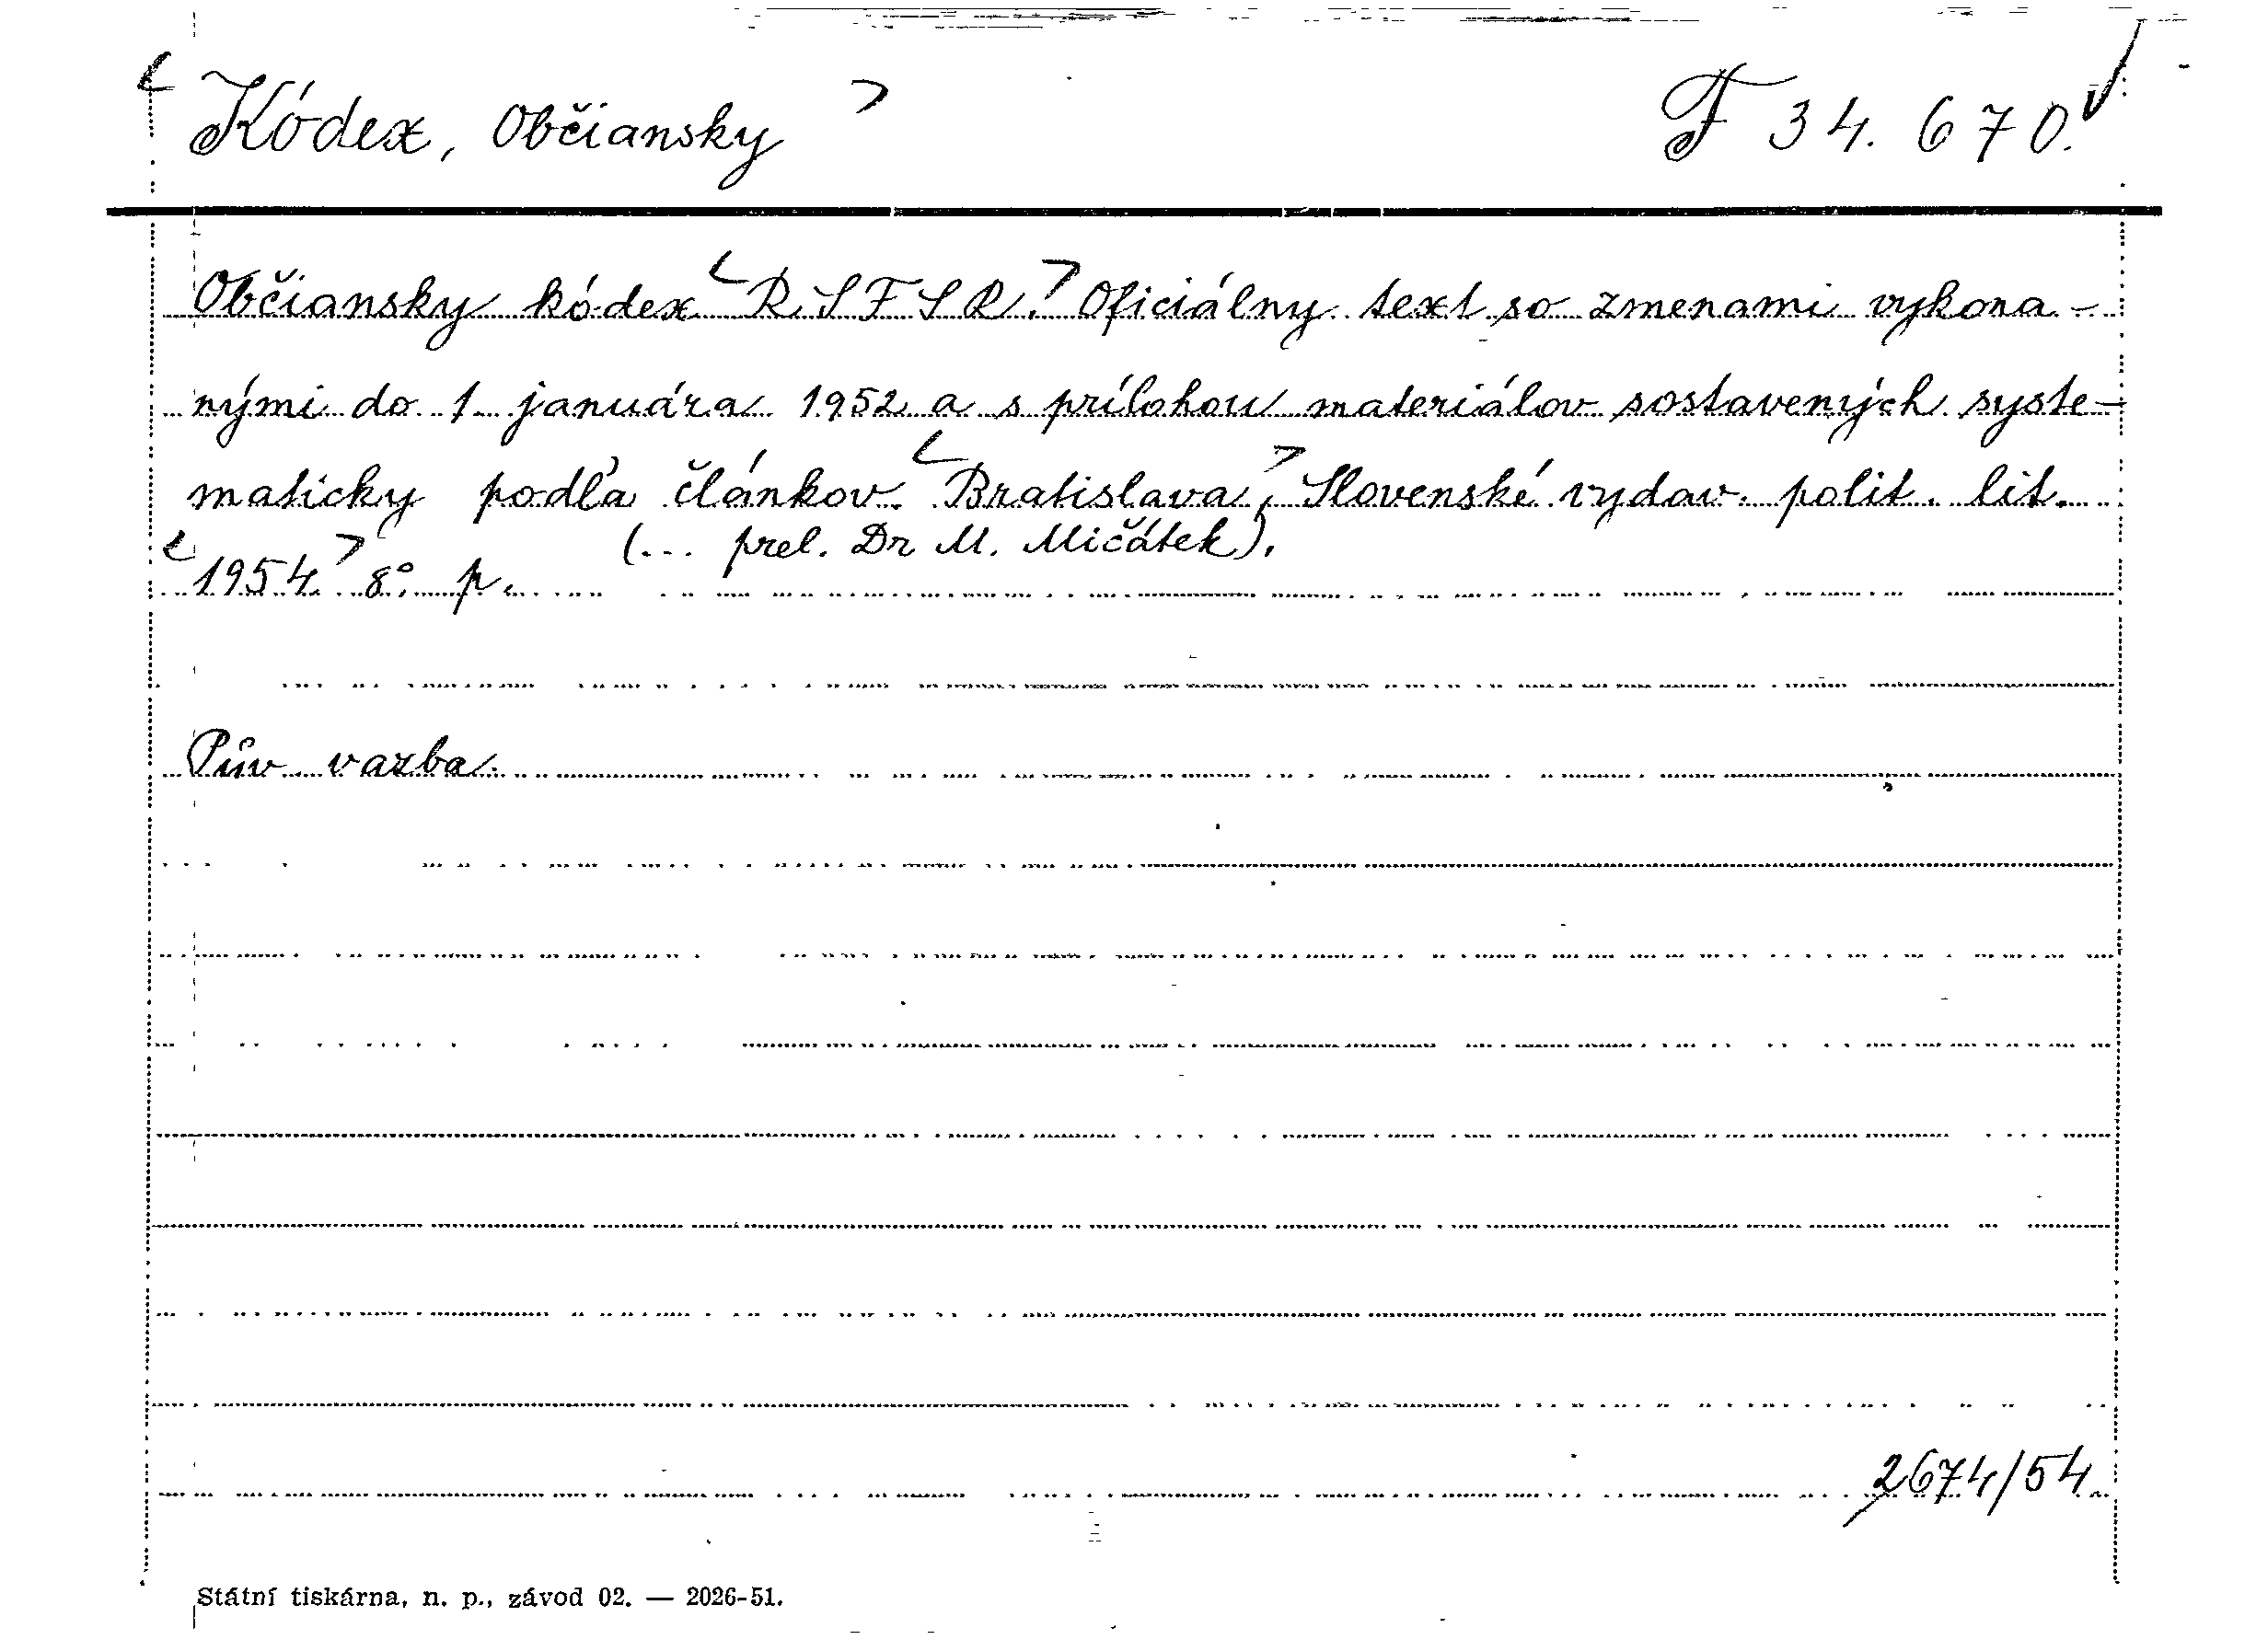 < Kódex, Občiansky > F 34.670.
Občiansky kódex <RSFSR.> Oficiálny text so zmenami vykona-
nými do 1. januára 1952 a s prílohou materiálov sostavených syste-
maticky podľa článkov. <Bratislava,> Slovenské vydav. polit. lit.
(... prel. Dr M. Mičátek).
<1954.> 8°. p.
Pův. vazba.
2674/54
Státní tiskárna, n. p., závod 02. — 2026-51.